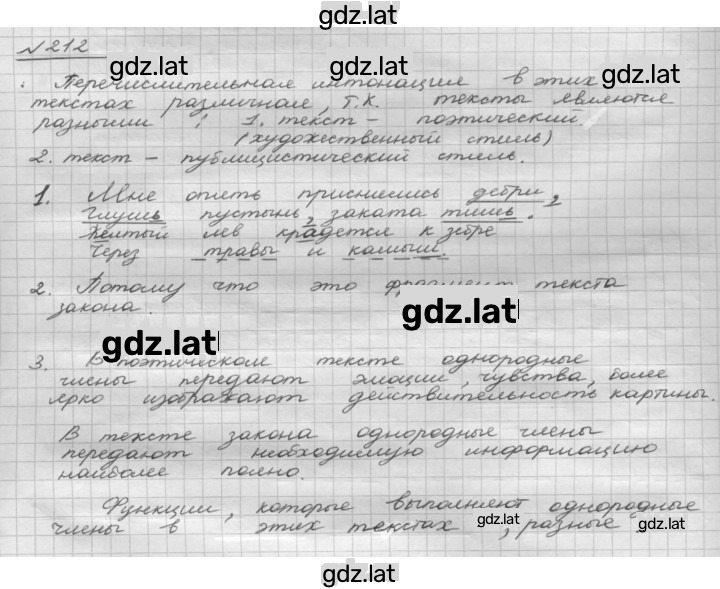 gdz.lat
№212
gdz.lat gdz.lat
Перечислительная интонация в этих
текстах различная, т.к. тексты являются
разными: 1. текст - поэтический.
(художественный стиль)
2. текст - публицистический стиль.
1. Мне опять приснились дебри,
Глушь пустынь, заката тишь.
Желтый лев крадется к зебре
Через травы и камыш.
2. Потому что это фрагмент текста
закона.
gdz.lat
gdz.lat
3. В поэтическом тексте однородные
члены передают эмоции, чувства, более
ярко изображают действительность картины.
В тексте закона однородные члены
передают необходимую информацию
наиболее полно.
Функции, которые выполняют однородные
члены в этих текстах, разные.
gdz.lat gdz.lat
gdz.lat